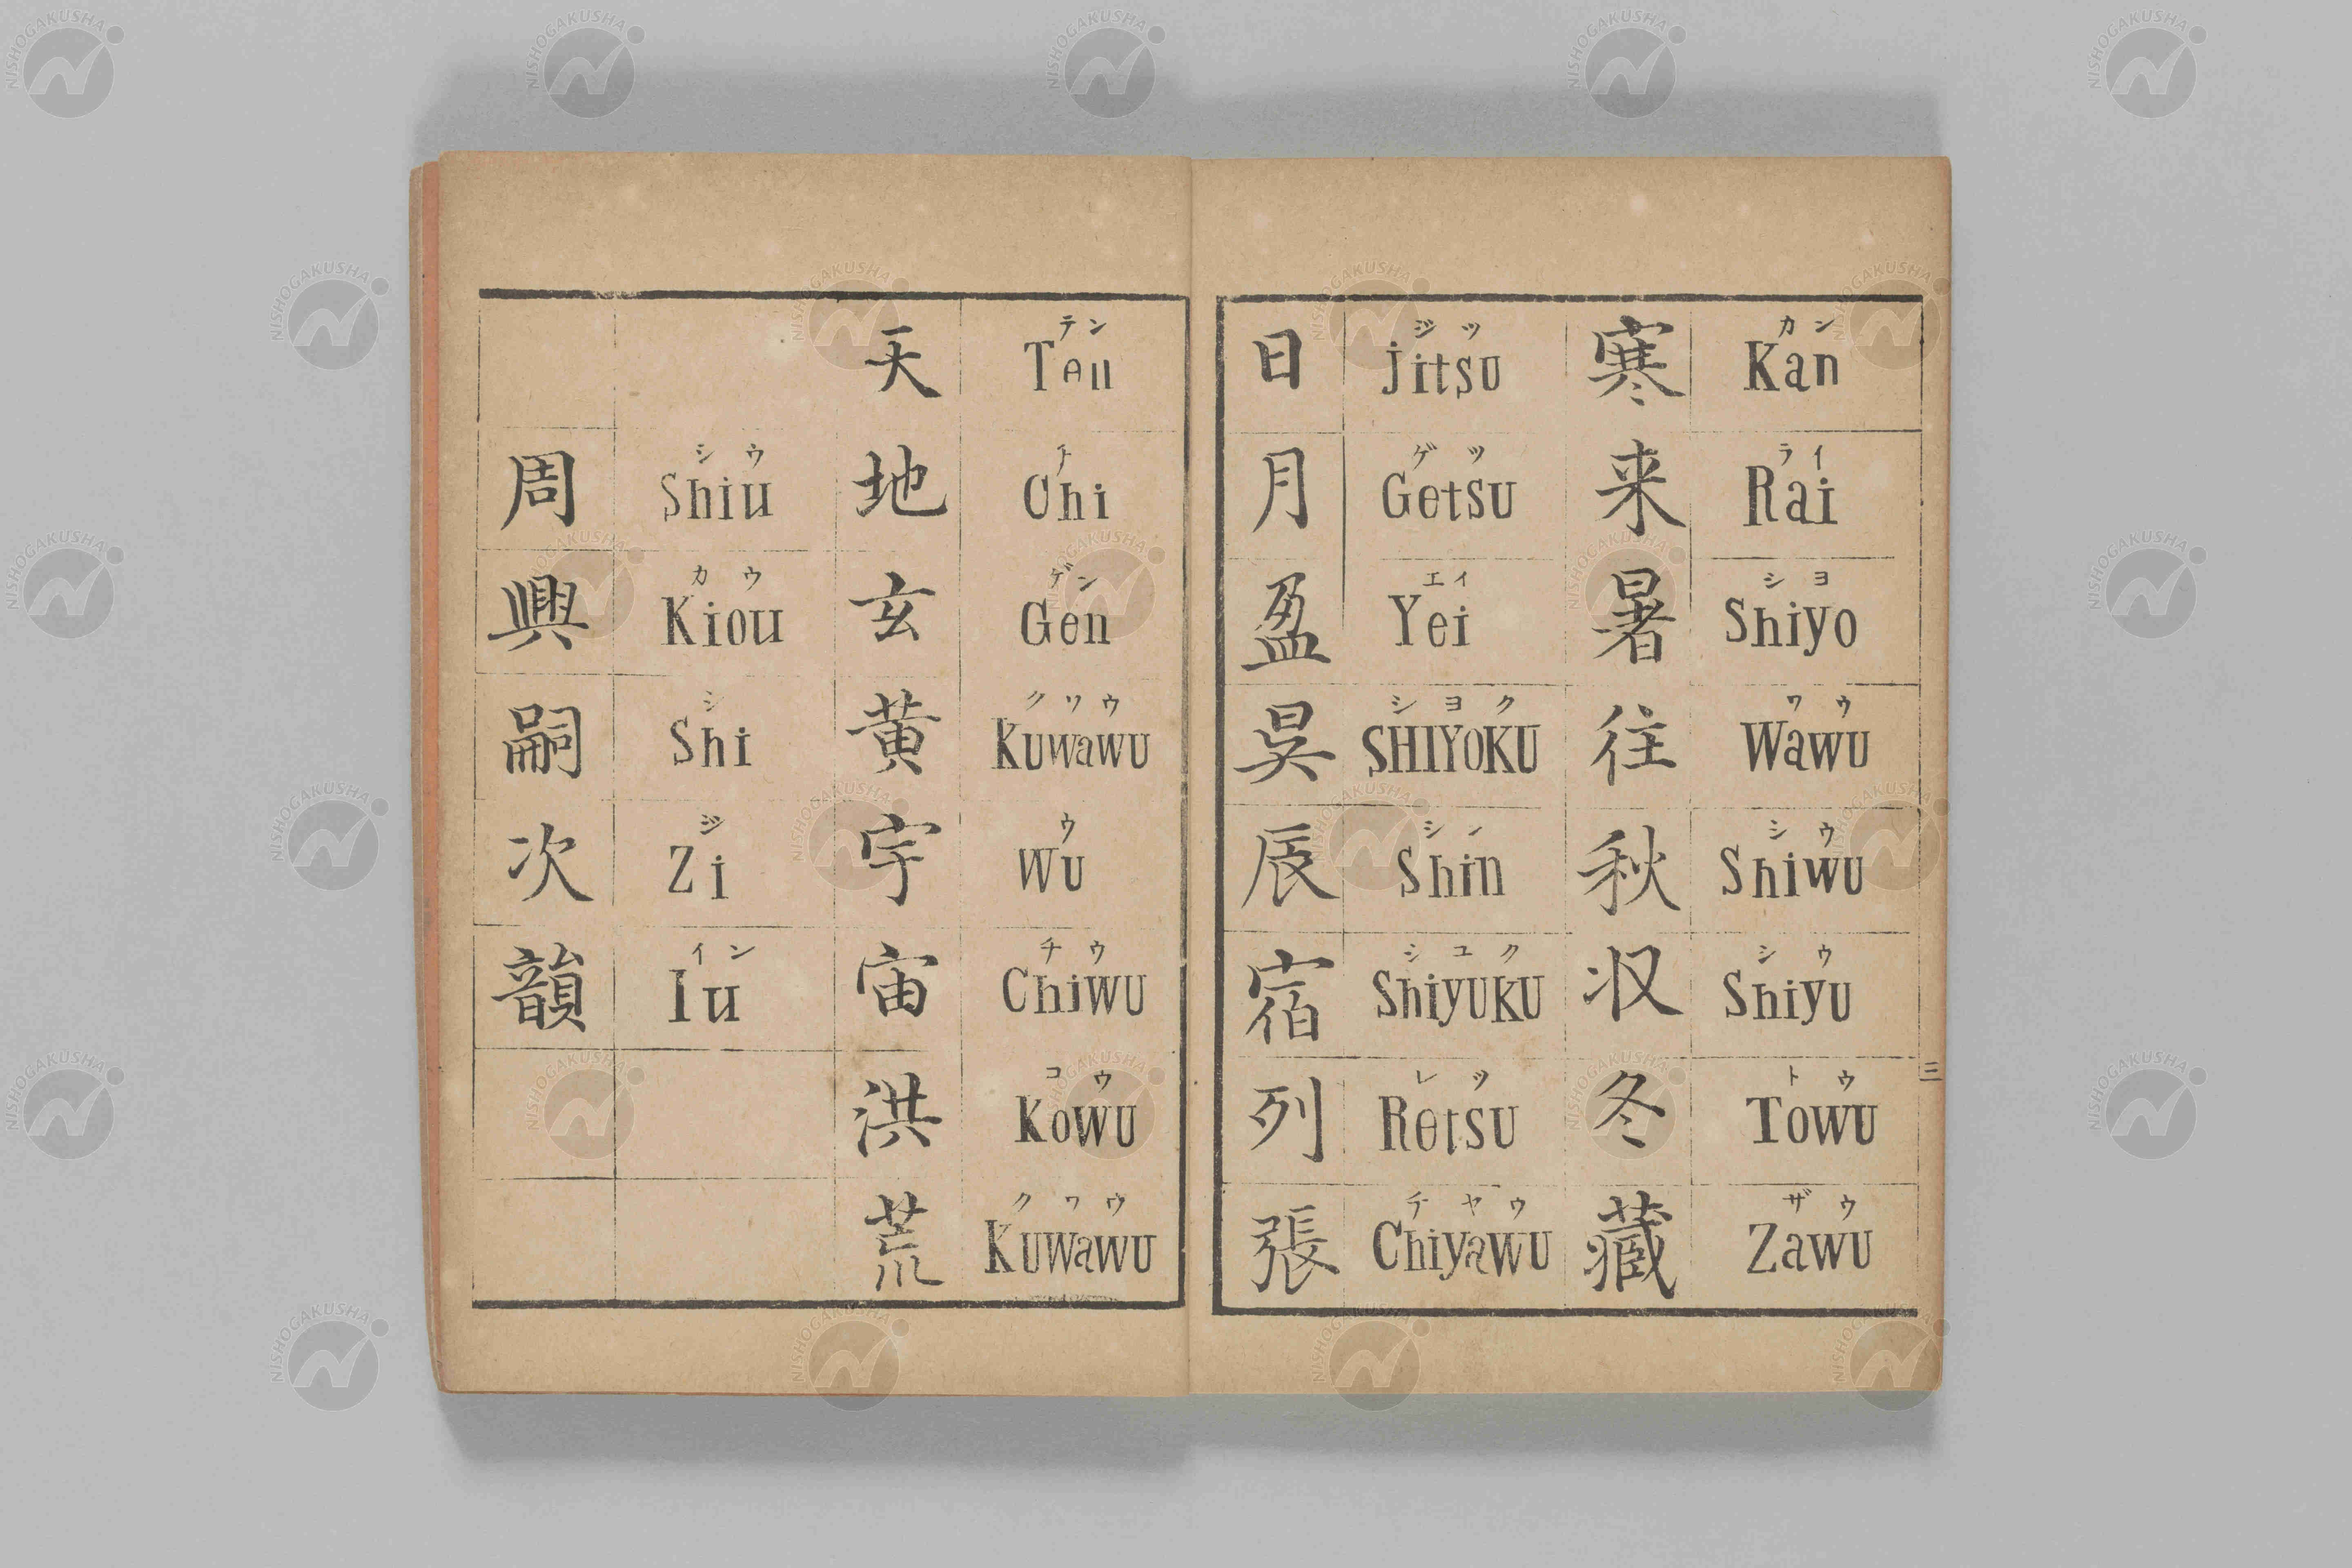 周興嗣次韻
シウ
Shiu
カウ
Kiou
シ
Shi
ジ
Zi
イン
Iu
天地玄黄宇宙洪荒
テン
Ten
チ
Chi
ゲン
Gen
クワウ
KUWaWU
ウ
WU
チウ
ChiWU
コウ
KoWU
クワウ
KUWaWU
日月盈昃辰宿列張
ジツ
jitsU
ゲツ
GetsU
エイ
Yei
シヨク
SHIYoKU
シン
Shin
シユク
ShiyUKU
レツ
RetsU
チヤウ
ChiyaWU
寒来暑往秋収冬藏
カン
Kan
ライ
Rai
シヨ
Shiyo
ワウ
WaWU
シウ
ShiWU
シウ
ShiyU
トウ
ToWU
ザウ
ZaWU
三
NISHOGAKUSHA